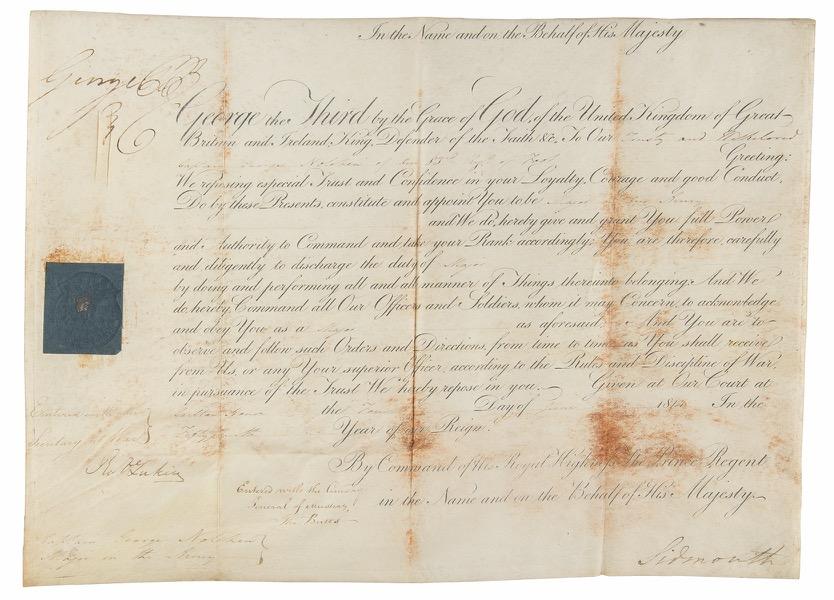 In the Name and on the Behalf of His Majesty
George P R
George the Third by the Grace of God, of the United Kingdom of Great
Britain and Ireland, King, Defender of the Faith &c, To Our Trusty and
Captain George of Our Regt of Foot Greeting:
We reposing especial Trust and Confidence in your Loyalty, Courage and good Conduct,
Do by these Presents, constitute and appoint You to be Major Army
and We do, hereby give and grant You full Power
and Authority to Command and take your Rank accordingly; You are therefore, carefully
and diligently to discharge the duty of Major
by doing and performing all and all manner of Things thereunto belonging; And We
do hereby Command all Our Officers and Soldiers, whom it may Concern, to acknowledge
and obey You as a Major as aforesaid; And You are to
observe and follow such Orders and Directions, from time to time, as You shall receive
from Us, or any Your superior Officer, according to the Rules and Discipline of War,
in pursuance of the Trust We hereby repose in you. Given at Our Court at
Carlton House the Day of June 181 In the
Year of our Reign.
Entered with the
Secretary at War
By Command of His Royal Highness The Prince Regent
in the Name and on the Behalf of His Majesty.
Entered with the
General of Musters
Captain George
Major in the Army
Sidmouth